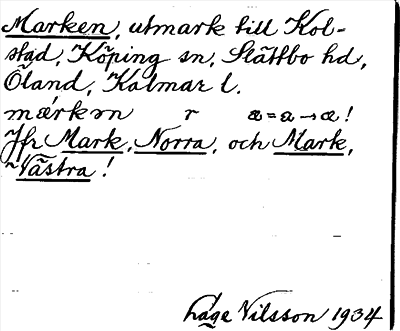 Marken, utmark till Kol-
stad, Köping sn, Slättbo hd,
Öland, Kalmar l.
mærkən r æ = a → æ!
Jfr Mark, Norra, och Mark,
~ Västra!
Hage Nilsson 1934